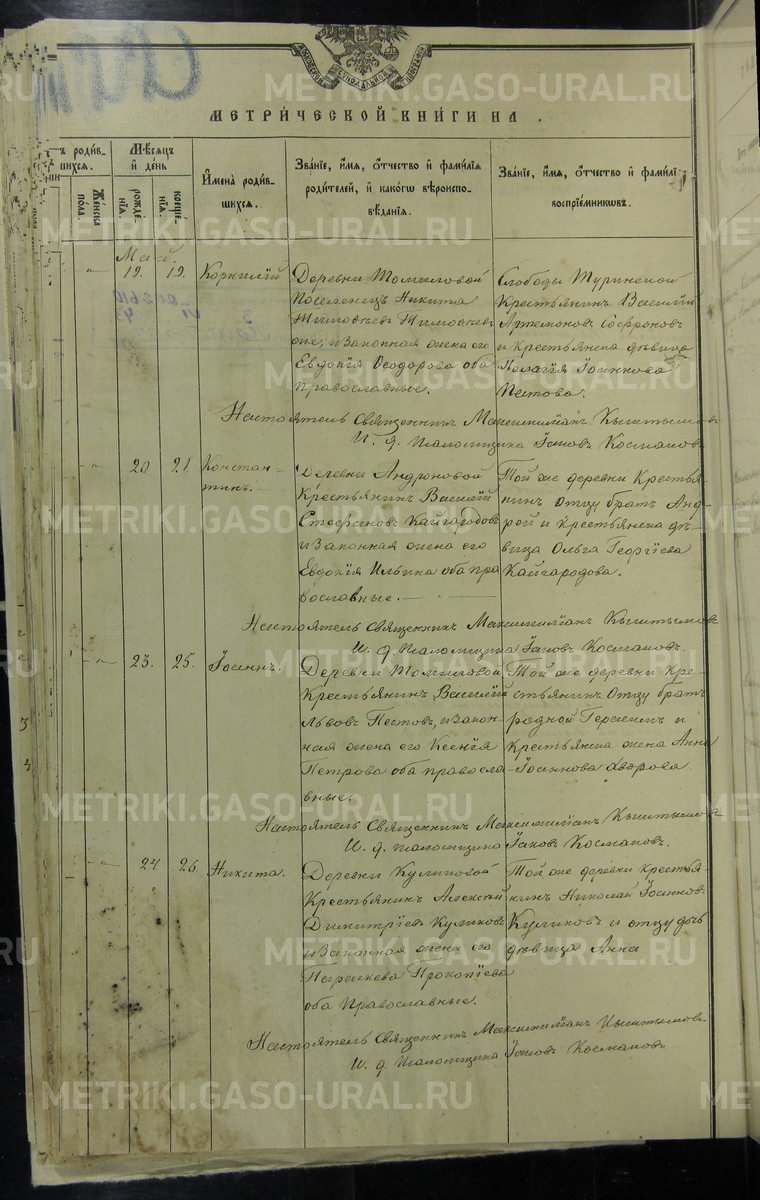 МЕТРИ́ЧЕСКОЙ КНИ́ГИ НА .
ъ родив-
шихся.
Же́нска
пола.
Мѣсяцъ
и҆ де́нь
рожде-
нїя.
креще-
нїя.
И҆мена̀ родив-
шихся.
Зва́нїе, и҆́мя, ѻ҆́тчество и҆ фами́лїя
роди́телей, и҆ како́гѡ вѣроиспо-
вѣ́данїя.
Зва́нїе, и҆́мя, ѻ҆́тчество и҆ фами́лї
воспрїе́мниковъ.
Май.
19. 19. Корнилій
Деревни Томиловой
Поселенецъ Никита
Тимоѳеевъ Тимоѳеевъ
же, и законная жена его
Евдокія Ѳеодорова оба
православные.
Слободы Туринской
Крестьянинъ Василій
Артемоновъ Софроновъ
и Крестьянска дѣвица
Пелагія Іоаннова
Пестова.
Настоятель Священникъ Максимиліанъ Кыштымовъ
И. д. псаломщика Іаковъ Космаковъ
20 21. Констан-
тинъ.
Деревни Андроновой
Крестьянинъ Василій
Стефановъ Кайгародовъ
и законная жена его
Евдокія Ильина оба пра
вославные.
Той же деревни Крестья
нинъ отцу братъ Анд
рей и Крестьянска дѣ-
вица Ольга Георгіева
Кайгародова.
Настоятель Священникъ Максимиліанъ Кыштымовъ
И. д. псаломщика Іаковъ Космаковъ.
23. 25. Іоаннъ.
Деревни Томиловой
Крестьянинъ Василій
Львовъ Пестовъ, и закон-
ная жена его Ксенія
Петрова оба правосла-
вные.
Той же деревни Кре-
стьянинъ отцу братъ
родной Герасимъ и
Крестьянска жена Анна
Іоаннова
Настоятель Священникъ Максимиліанъ Кыштымовъ
И. д. псаломщика Іаковъ Космаковъ.
24 26 Никита.
Деревни Куликовой
Крестьянинъ Алексій
Димитріевъ Куликовъ
и законная жена его
Параскева Прокопіева
оба Православные.
Той же деревни крестья-
нинъ Николай Іоанновъ
Куликовъ и отцу дочь
дѣвица Анна
Настоятель Священникъ Максимиліанъ Кыштымовъ
И. д. псаломщика Іаковъ Космаковъ
METRIKI.GASO-URAL.RU